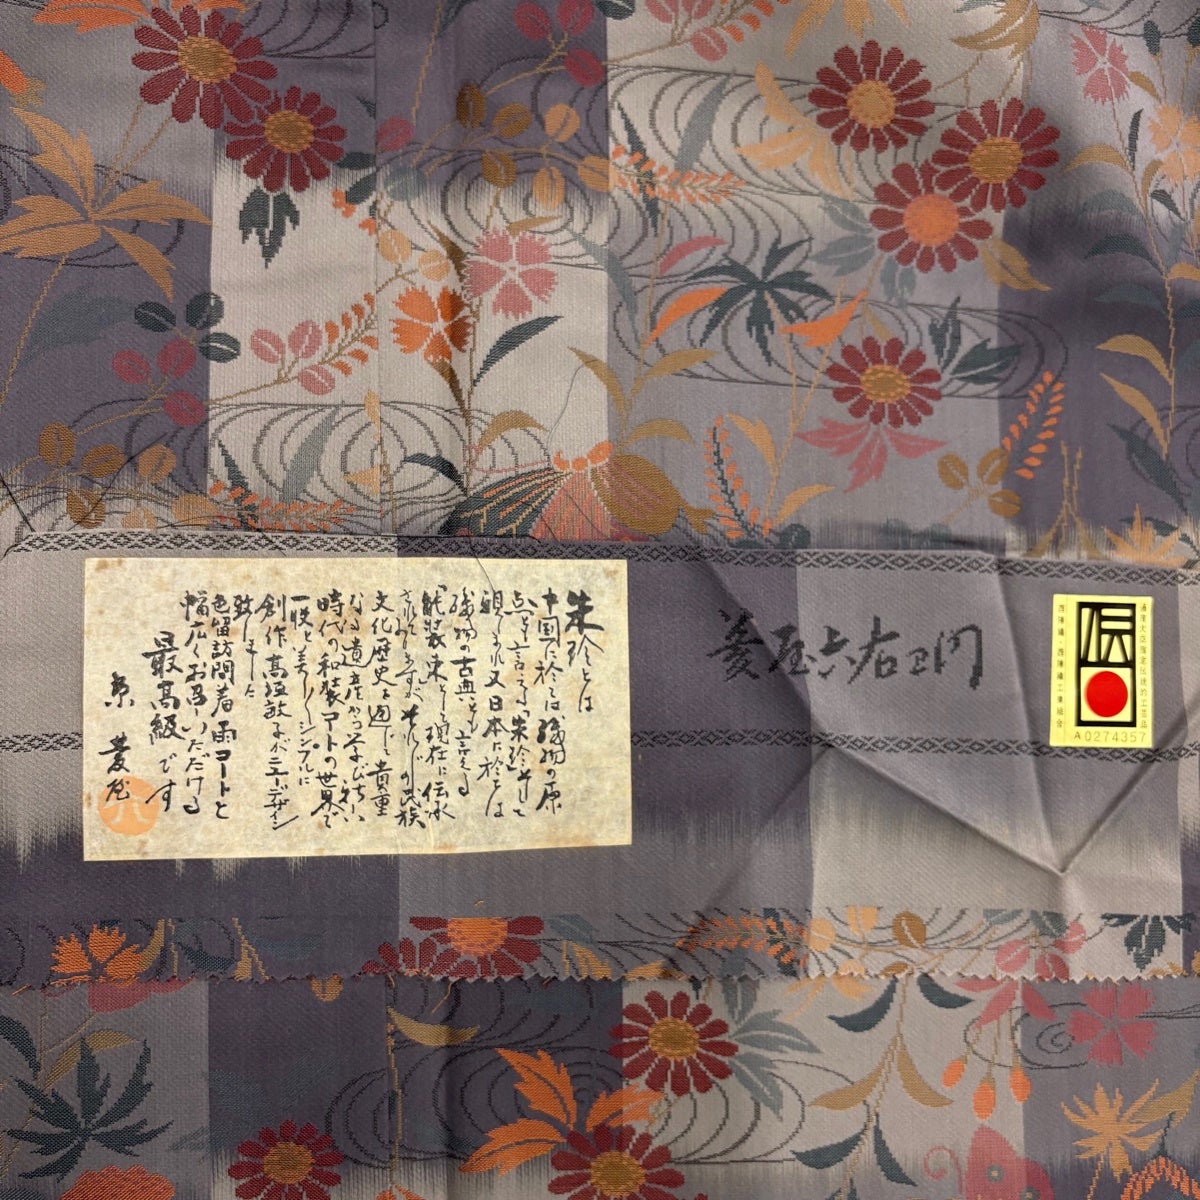 朱珍とは
中国に於ては織物の原
点とも言える「朱珍」そして
親しまれ又日本に於ては
織物の古典とも言える
「能装束」として現在に伝承
されておりますがそれぞれの民族
文化歴史を通じて貴重
なる遺産かつ学びちい
時代の和装コートの世界で
一段と美しくシンプルに
創作高級感がニューデザイン
致しました
色留訪問着雨コートと
幅広くお召しいただける
最高級です
京 菱屋
菱屋六右ヱ門
通産大臣指定伝統的工芸品
西陣織・西陣織工業組合
A0274357